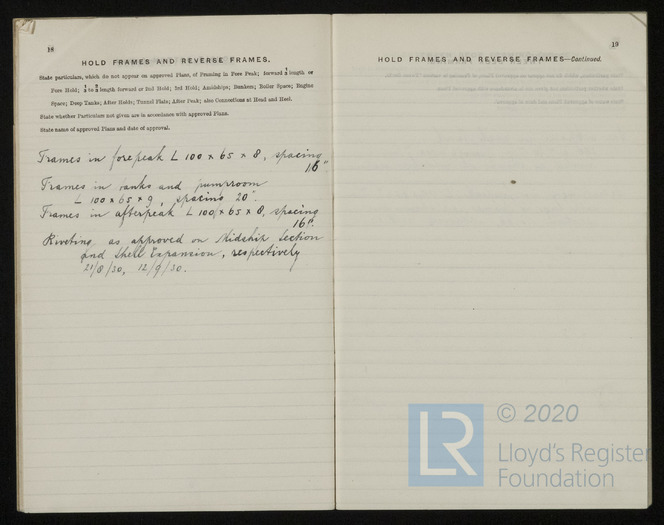 18
HOLD FRAMES AND REVERSE FRAMES.
State particulars, which do not appear on approved Plans, of Framing in Fore Peak; forward ½ length or
Fore Hold; to length forward or 2nd Hold; 3rd Hold; Amidships; Bunkers; Boiler Space; Engine
Space; Deep Tanks; After Holds; Tunnel Flats; After Peak; also Connections at Head and Heel.
State whether Particulars not given are in accordance with approved Plans.
State name of approved Plans and date of approval.
Frames in forepeak L 100 x 65 x 8, spacing
16"
Frames in tanks and pumproom
L 100 x 65 x 9, spacing 20".
Frames in afterpeak L 100 x 65 x 8, spacing
16".
Riveting, as approved on Midship Section
and Shell Expansion, respectively
21/8/30, 12/9/30.
19
HOLD FRAMES AND REVERSE FRAMES—Continued.
LR
© 2020
Lloyd's Register
Foundation